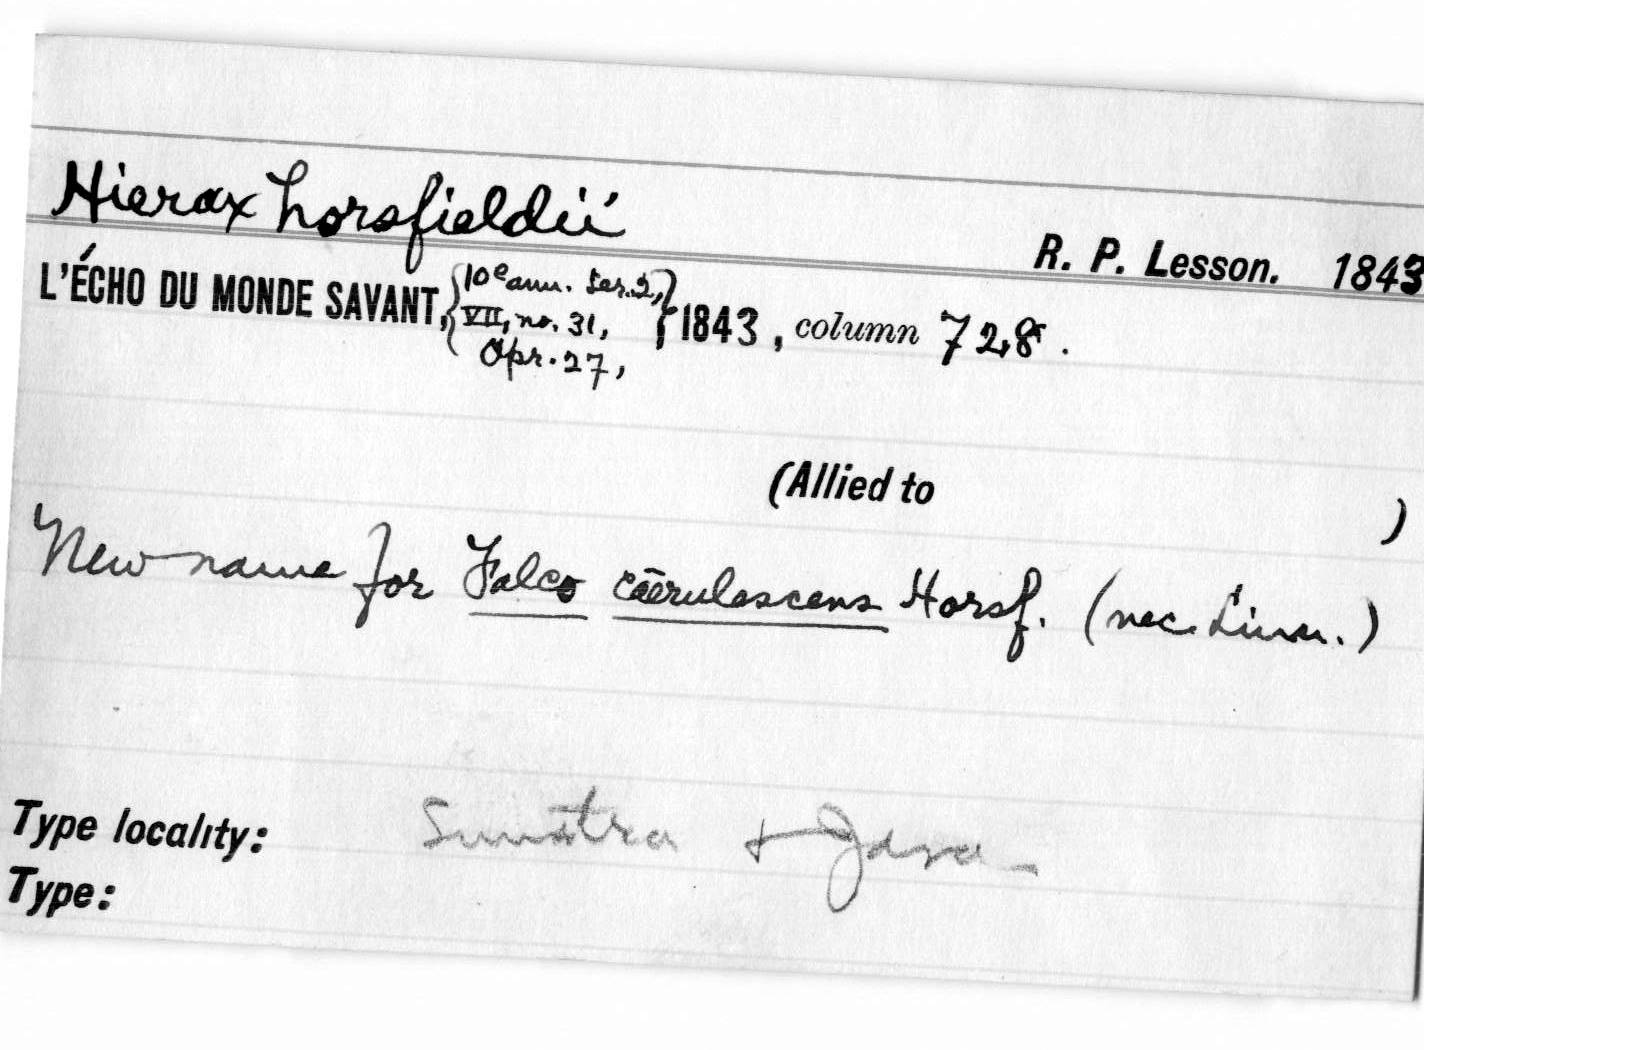 Hierax horsfieldii
R. P. Lesson. 1843
L'ÉCHO DU MONDE SAVANT, {10e ann. Ser. 2, VII, no. 31, Apr. 27,} 1843, column 728.
(Allied to )
New name for Falco cāerulescens Horsf. (nec Linn.)
Type locality: Sumatra + Java
Type: